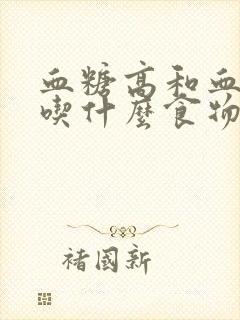 血糖高和血
喫什麼食物
褚國新